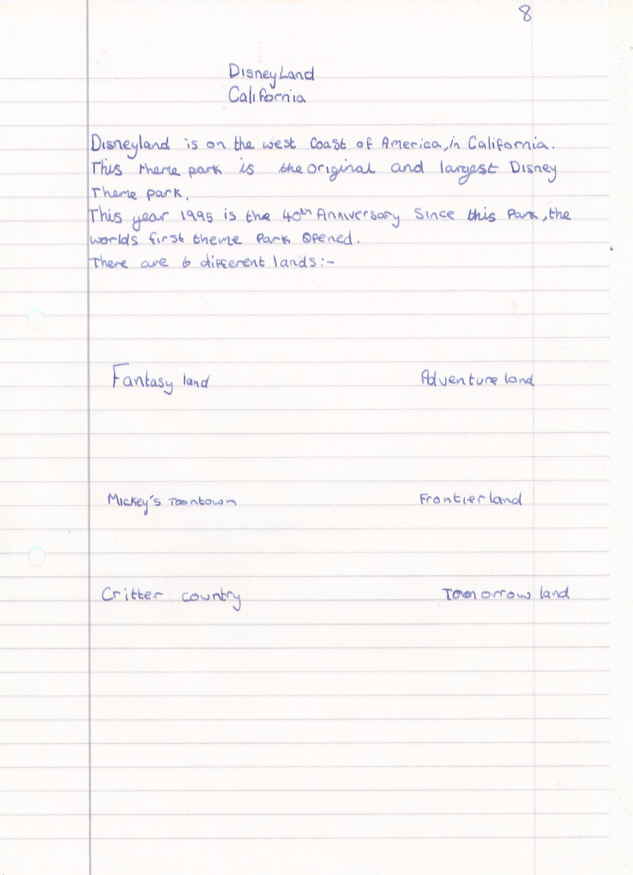 8
Disneyland
California
Disneyland is on the west Coast of America, in California.
This theme park is the original and largest Disney
Theme park.
This year 1995 is the 40th Anniversary Since this Park, the
worlds first theme Park Opened.
There are 6 different lands:-
Fantasy land Adventure land
Mickey's Toontown Frontier land
Critter country Tomorrow land